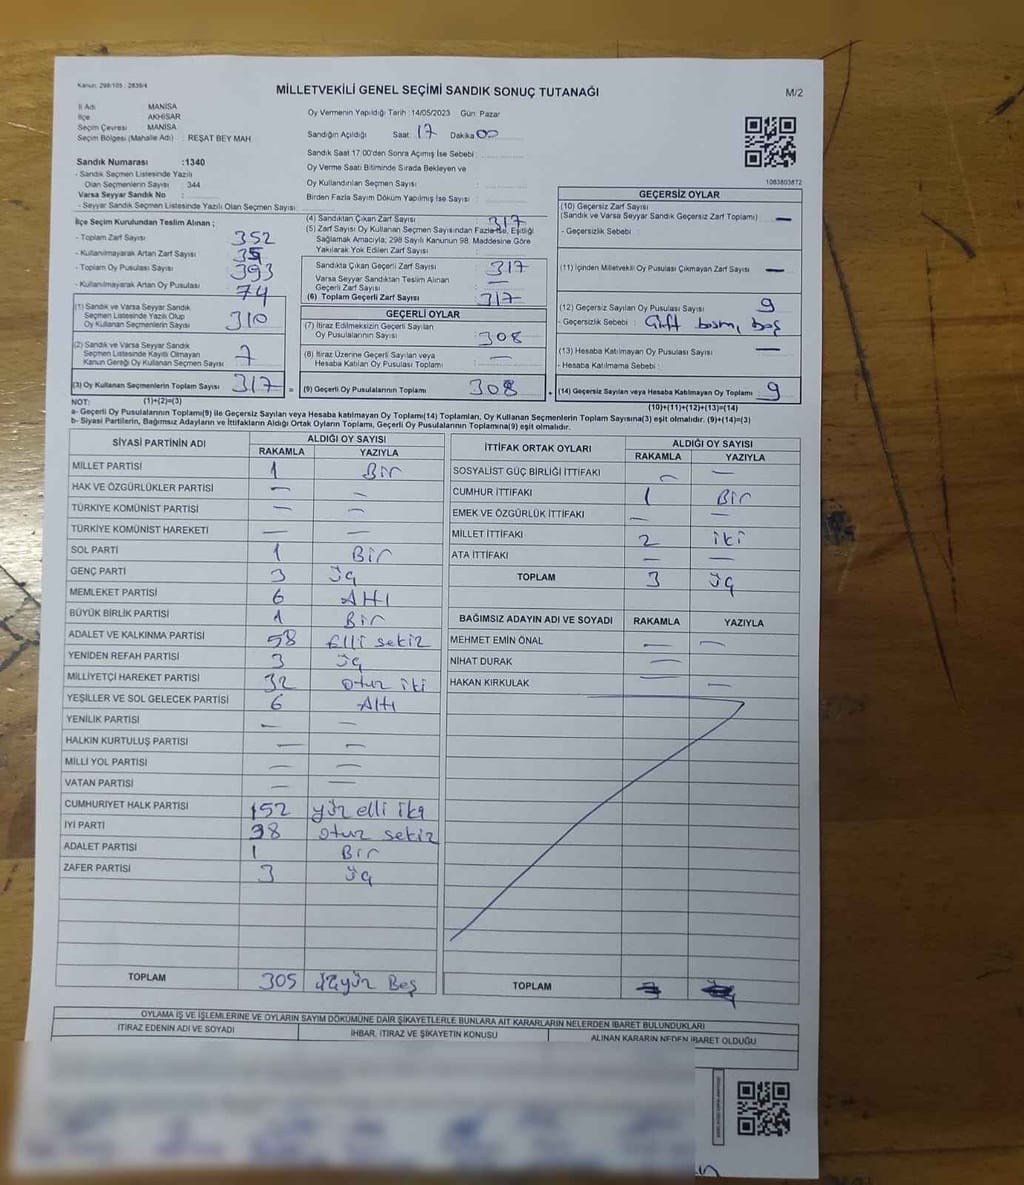 Kanun: 298/105 : 2839/4
MİLLETVEKİLİ GENEL SEÇİMİ SANDIK SONUÇ TUTANAĞI
M/2
İl Adı : MANİSA
İlçe : AKHİSAR
Seçim Çevresi : MANİSA
Seçim Bölgesi (Mahalle Adı) : REŞAT BEY MAH
Oy Vermenin Yapıldığı Tarih :14/05/2023 Gün: Pazar
Sandığın Açıldığı Saat: 17 Dakika 00
Sandık Saat 17:00'den Sonra Açımış İse Sebebi :
Oy Verme Saati Bitiminde Sırada Bekleyen ve
Oy Kullandırılan Seçmen Sayısı :
Birden Fazla Sayım Döküm Yapılmış İse Sayısı :
Sandık Numarası :1340
- Sandık Seçmen Listesinde Yazılı
Olan Seçmenlerin Sayısı : 344
Varsa Seyyar Sandık No :
- Seyyar Sandık Seçmen Listesinde Yazılı Olan Seçmen Sayısı:
1083803872
İlçe Seçim Kurulundan Teslim Alınan ;
- Toplam Zarf Sayısı : 352
- Kullanılmayarak Artan Zarf Sayısı : 35
- Toplam Oy Pusulası Sayısı : 393
- Kullanılmayarak Artan Oy Pusulası : 74
(1) Sandık ve Varsa Seyyar Sandık
Seçmen Listesinde Yazılı Olup
Oy Kullanan Seçmenlerin Sayısı : 310
(2) Sandık ve Varsa Seyyar Sandık
Seçmen Listesinde Kayıtlı Olmayan
Kanun Gereği Oy Kullanan Seçmen Sayısı : 7
(3) Oy Kullanan Seçmenlerin Toplam Sayısı : 317 =
(4) Sandıktan Çıkan Zarf Sayısı : 317
(5) Zarf Sayısı Oy Kullanan Seçmen Sayısından Fazla İse, Eşitliği
Sağlamak Amacıyla; 298 Sayılı Kanunun 98. Maddesine Göre
Yakılarak Yok Edilen Zarf Sayısı :
Sandıkta Çıkan Geçerli Zarf Sayısı : 317
Varsa Seyyar Sandıktan Teslim Alınan
Geçerli Zarf Sayısı : —
(6) Toplam Geçerli Zarf Sayısı : 317
GEÇERLİ OYLAR
(7) İtiraz Edilmeksizin Geçerli Sayılan
Oy Pusulalarının Sayısı : 308
(8) İtiraz Üzerine Geçerli Sayılan veya
Hesaba Katılan Oy Pusulası Toplamı : —
(9) Geçerli Oy Pusulalarının Toplamı : 308 +
GEÇERSİZ OYLAR
(10) Geçersiz Zarf Sayısı
(Sandık ve Varsa Seyyar Sandık Geçersiz Zarf Toplamı) : —
- Geçersizlik Sebebi :
(11) İçinden Milletvekili Oy Pusulası Çıkmayan Zarf Sayısı : —
(12) Geçersiz Sayılan Oy Pusulası Sayısı : 9
- Geçersizlik Sebebi : Çift basım, boş
(13) Hesaba Katılmayan Oy Pusulası Sayısı : —
- Hesaba Katılmama Sebebi :
(14) Geçersiz Sayılan veya Hesaba Katılmayan Oy Toplamı : 9
NOT: (1)+(2)=(3) (10)+(11)+(12)+(13)=(14)
a- Geçerli Oy Pusulalarının Toplamı(9) ile Geçersiz Sayılan veya Hesaba katılmayan Oy Toplamı(14) Toplamları, Oy Kullanan Seçmenlerin Toplam Sayısına(3) eşit olmalıdır. (9)+(14)=(3)
b- Siyasi Partilerin, Bağımsız Adayların ve İttifakların Aldığı Ortak Oyların Toplamı, Geçerli Oy Pusulalarının Toplamına(9) eşit olmalıdır.
SİYASİ PARTİNİN ADI ALDIĞI OY SAYISI
RAKAMLA YAZIYLA
MİLLET PARTİSİ 1 Bir
HAK VE ÖZGÜRLÜKLER PARTİSİ — —
TÜRKİYE KOMÜNİST PARTİSİ — —
TÜRKİYE KOMÜNİST HAREKETİ — —
SOL PARTİ 1 Bir
GENÇ PARTİ 3 üç
MEMLEKET PARTİSİ 6 Altı
BÜYÜK BİRLİK PARTİSİ 1 Bir
ADALET VE KALKINMA PARTİSİ 58 Elli sekiz
YENİDEN REFAH PARTİSİ 3 üç
MİLLİYETÇİ HAREKET PARTİSİ 32 otuz iki
YEŞİLLER VE SOL GELECEK PARTİSİ 6 Altı
YENİLİK PARTİSİ — —
HALKIN KURTULUŞ PARTİSİ — —
MİLLİ YOL PARTİSİ — —
VATAN PARTİSİ — —
CUMHURİYET HALK PARTİSİ 152 yüz elli iki
İYİ PARTİ 38 otuz sekiz
ADALET PARTİSİ 1 Bir
ZAFER PARTİSİ 3 üç
TOPLAM 305 üçyüz Beş
İTTİFAK ORTAK OYLARI ALDIĞI OY SAYISI
RAKAMLA YAZIYLA
SOSYALİST GÜÇ BİRLİĞİ İTTİFAKI — —
CUMHUR İTTİFAKI 1 Bir
EMEK VE ÖZGÜRLÜK İTTİFAKI — —
MİLLET İTTİFAKI 2 iki
ATA İTTİFAKI — —
TOPLAM 3 üç
BAĞIMSIZ ADAYIN ADI VE SOYADI RAKAMLA YAZIYLA
MEHMET EMİN ÖNAL — —
NİHAT DURAK —
HAKAN KIRKULAK — —
TOPLAM
OYLAMA İŞ VE İŞLEMLERİNE VE OYLARIN SAYIM DÖKÜMÜNE DAİR ŞİKAYETLERLE BUNLARA AİT KARARLARIN NELERDEN İBARET BULUNDUKLARI
İTİRAZ EDENİN ADI VE SOYADI İHBAR, İTİRAZ VE ŞİKAYETİN KONUSU ALINAN KARARIN NEDEN İBARET OLDUĞU